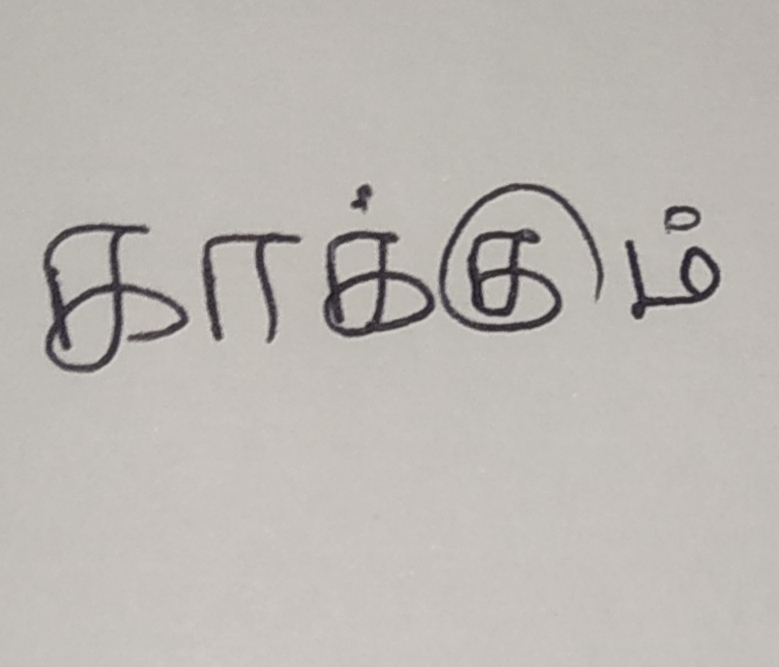 காக்கும்